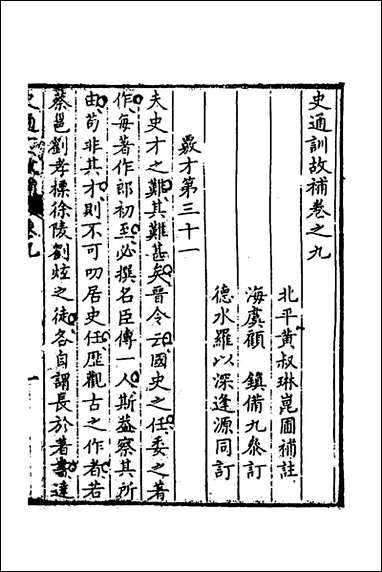 史通訓故補卷之九
北平黃叔琳崑圃補註
海虞顧　鎮備九參訂
德水羅以深逢源同訂
覈才第三十一
夫史才之難其難甚矣晉令云國史之任委之著
作每著作郎初至必撰名臣傳一人斯蓋察其所
由苟非其才則不可叨居史任歷觀古之作者若
蔡邕劉孝標徐陵劉炫之徒各自謂長於著書達
史通
卷九
一